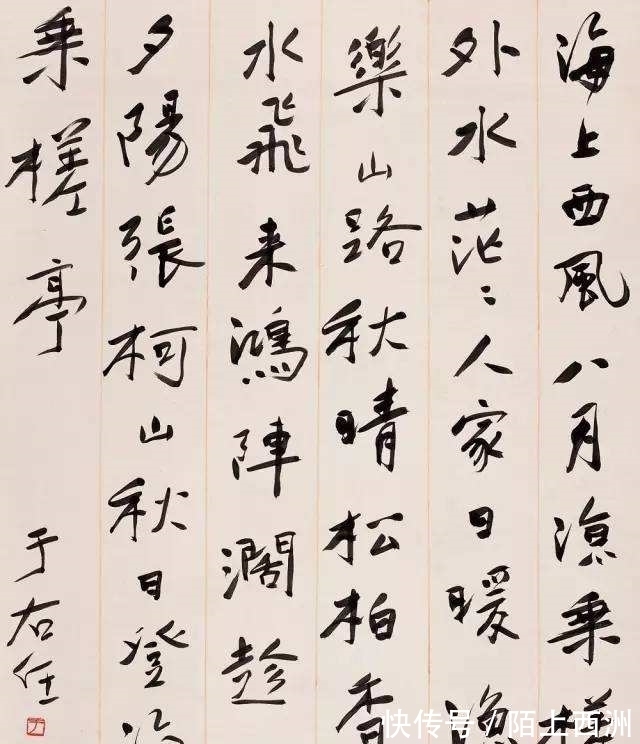 海上西風八月涼乘槎
外水茫〻人家日暖漁
樂山路秋晴松柏香
水飛来鴻陣濶趁
夕陽張柯山秋日登
乘槎亭
于右任
快传号 / 陌上西洲